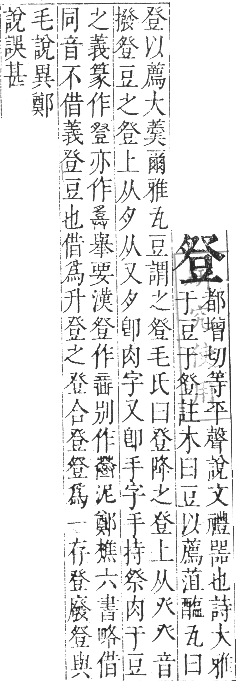 豋都瞪切等平聲說文禮噐也詩大雅
于豆于豋註木曰豆以薦葅醢瓦曰
登以薦大羹爾雅瓦豆謂之豋毛氏曰登降之登上从癶癶音
撥豋豆之豋上从夕从又夕卽肉字又卽手字手持祭肉于豆
之義篆作豋亦作𤼷舉要漢豋作𤲃別作䰭泥鄭樵六書略借
同音不借義登豆也借爲升登之登合登豋爲一存登廢豋與
毛說異鄭
說誤甚